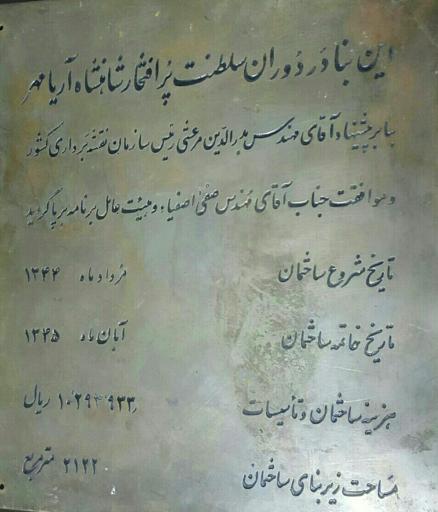 این بنا در دوران سلطنت پر افتخار شاهنشاه آریامهر
بنا بر پیشنهاد آقای مهندس بدرالدین مرعشی رئیس سازمان نقشه برداری کشور
و موافقت جناب آقای مهندس صفی اصفیاء و هیئت عامل برنامه برپا گردید
تاریخ شروع ساختمان مرداد ماه ۱۳۴۴
تاریخ خاتمه ساختمان آبان ماه ۱۳۴۵
هزینه ساختمان و تأسیسات ۱۰٬۲۹۴٬۹۳۳ ریال
مساحت زیربنای ساختمان ۲۱۲۲ مترمربع